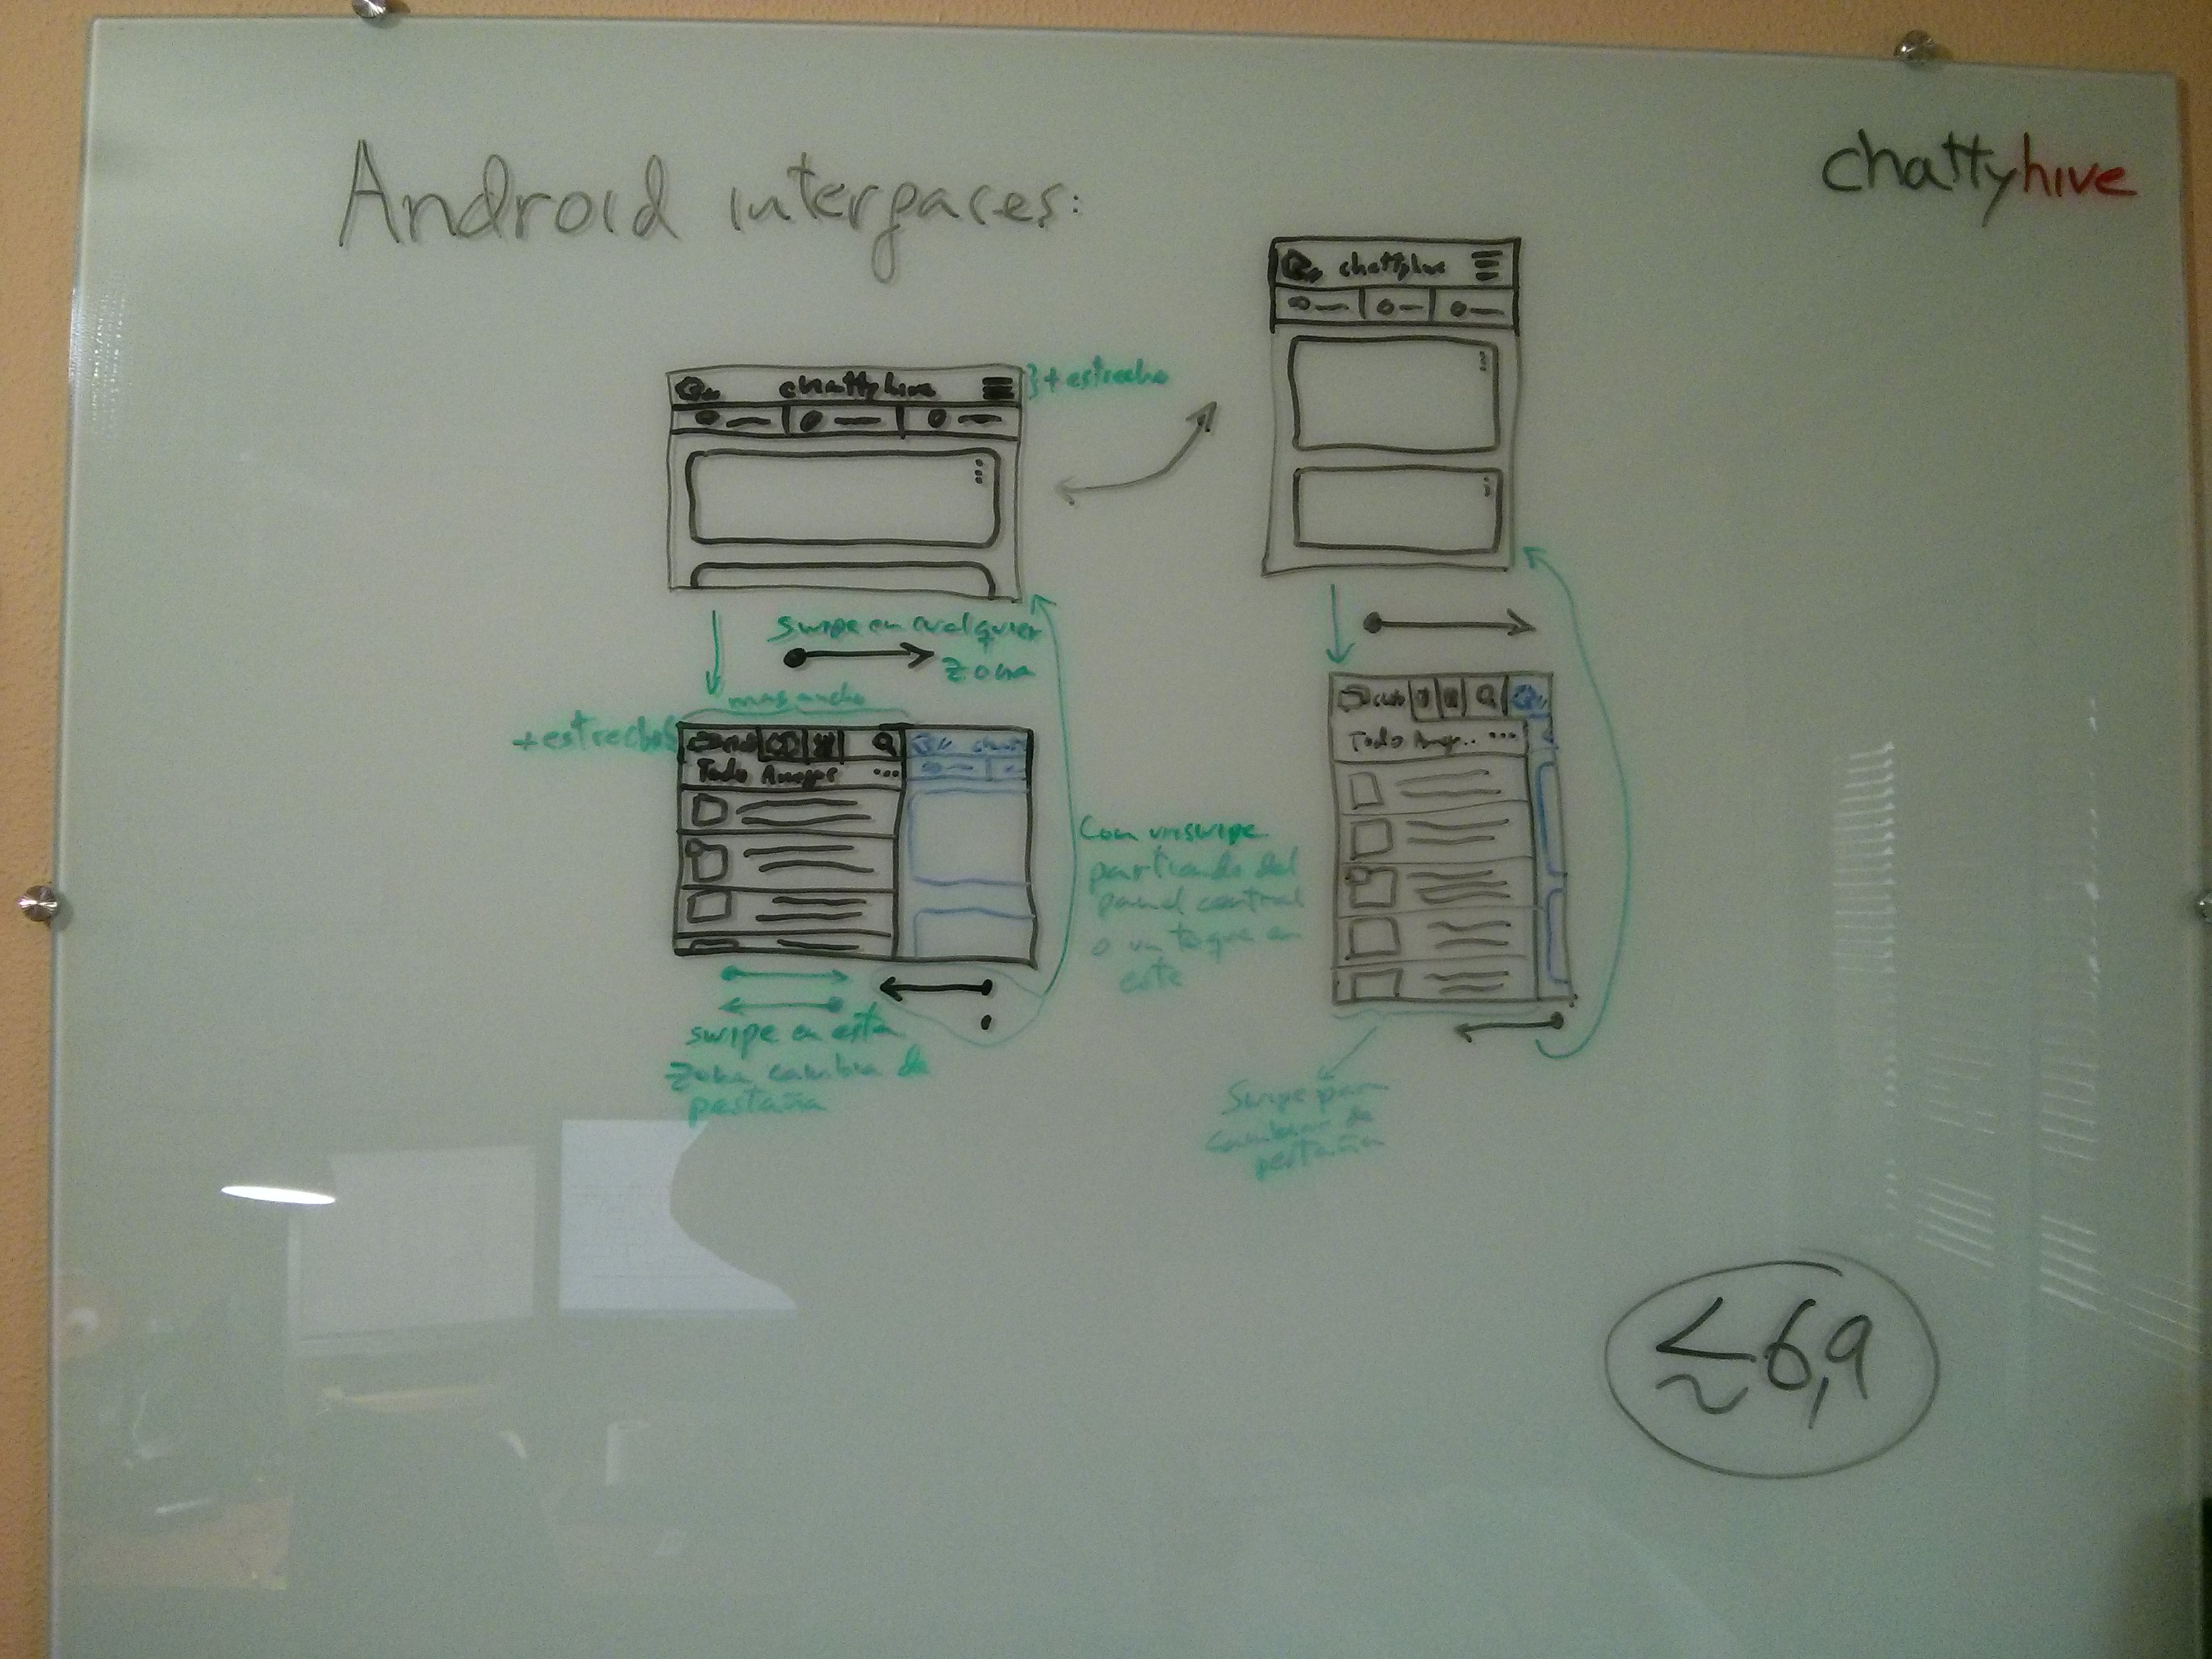 Android interfaces:
chattyhive
chattyhive
chattyhive
}+ estrecho
swipe en cualquier
zona
mas ancho
+estrechos
Todo Amigos ...
Todo Amig.. ...
Con un swipe
partiendo del
panel central
o un toque en
este
swipe en esta
zona cambia de
pestaña
Swipe para
cambiar de
pestaña
≲6,9